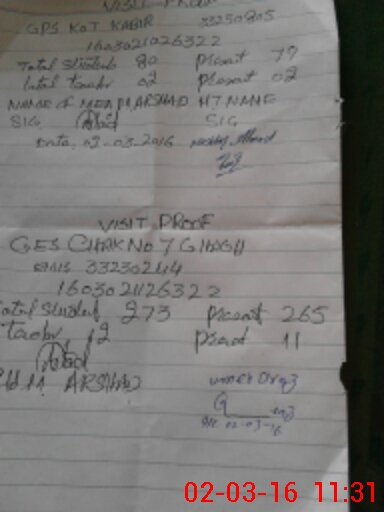 VISIT PROOF
GPS KOT KABIR 33230805
1603021026322
Total Students 80 Present 79
Total teacher 02 Present 02
NAME OF MEA M ARSHAD HT NAME
SIG SIG
Date. 02-03-2016 Ahmed
VISIT PROOF
GES CHAK No 7 GHAGH
EMIS 33230244
1603021126322
Total Student 273 Present 265
Teacher 12 Present 11
M ARSHAD
02-03-16
02-03-16 11:31